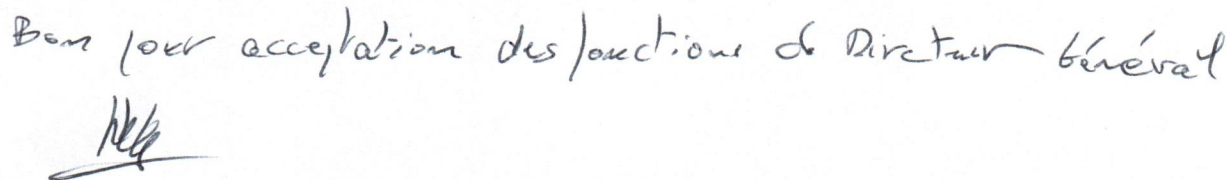 Bon pour acceptation des fonctions de Directeur Général